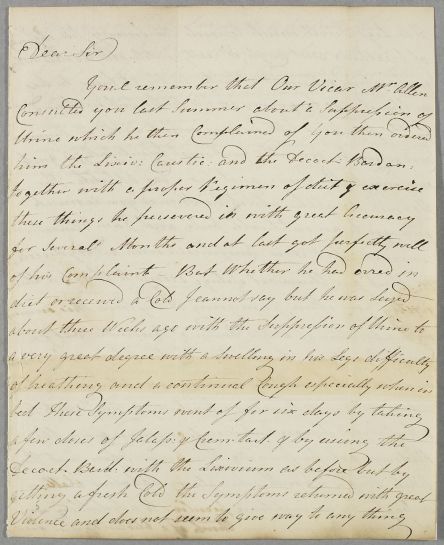 Dear Sir
Youl remember that Our Vicar Mr. Allen
Consulted you last Summer about a Suppression of
Urine which he then Complained of you then ordered
him the Lixiv: Caustic: and the Decoct: Bardan:
together with a proper Regimen of diet & exercise
these things he persevered in with great Accuracy
for Several Months and at last got perfectly well
of his Complaint – But Whether he had erred in
diet or received a Cold I cannot say but he was Seized
about three Weeks ago with the Suppression of Urine to
a very great degree with a Swelling in his Legs difficulty
of breathing and a continual Cough especially when in
bed these Symptoms went of for six days by taking
a few doses of Jalap: & Crem: tart: & by using the
Decoct: Bard: with the Lixivium as before but by
getting a fresh Cold the Symptoms returned with great
Violence and does not seem to give way to any thing